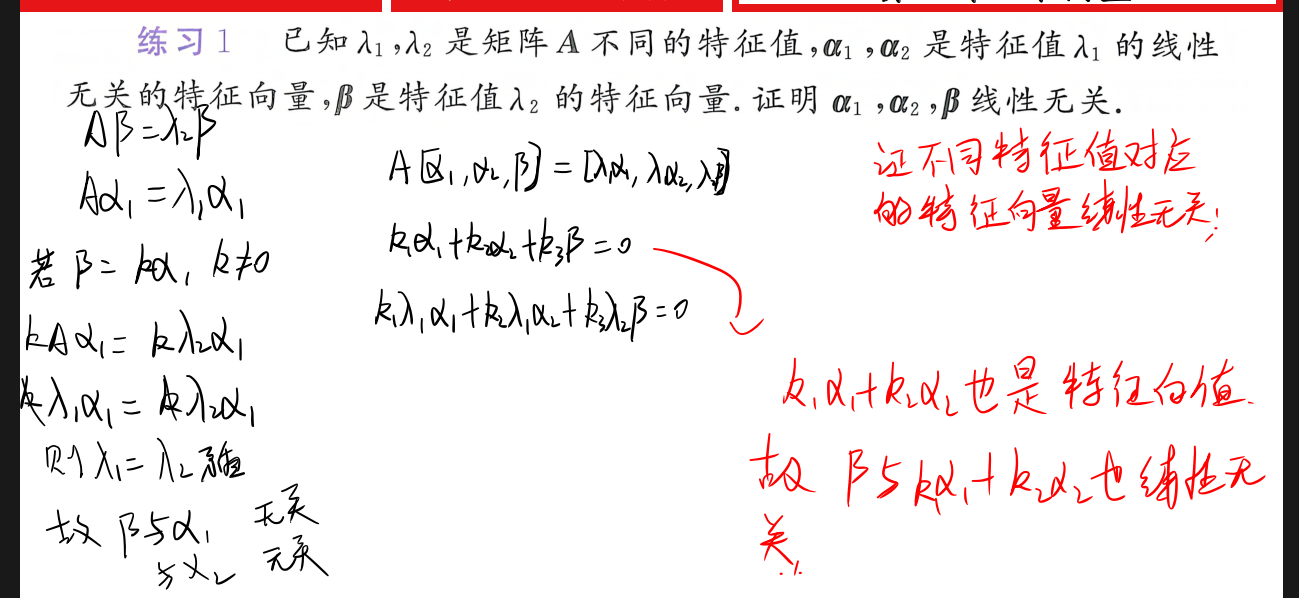 练习1 已知λ₁,λ₂是矩阵A不同的特征值,α₁,α₂是特征值λ₁的线性
无关的特征向量,β是特征值λ₂的特征向量.证明α₁,α₂,β线性无关.
Aβ=λ₂β
Aα₁=λ₁α₁
若β=kα₁ k≠0
kAα₁=kλ₂α₁
kλ₁α₁=kλ₂α₁
则λ₁=λ₂
故β与α₁ 无关
与α₂ 无关
A[α₁,α₂,β]=[λ₁α₁,λα₂,λ₂β]
k₁α₁+k₂α₂+k₃β=0
k₁λ₁α₁+k₂λ₁α₂+k₃λ₂β=0
证不同特征值对应
的特征向量线性无关;
k₁α₁+k₂α₂也是特征向值.
故β与k₁α₁+k₂α₂也线性无
关